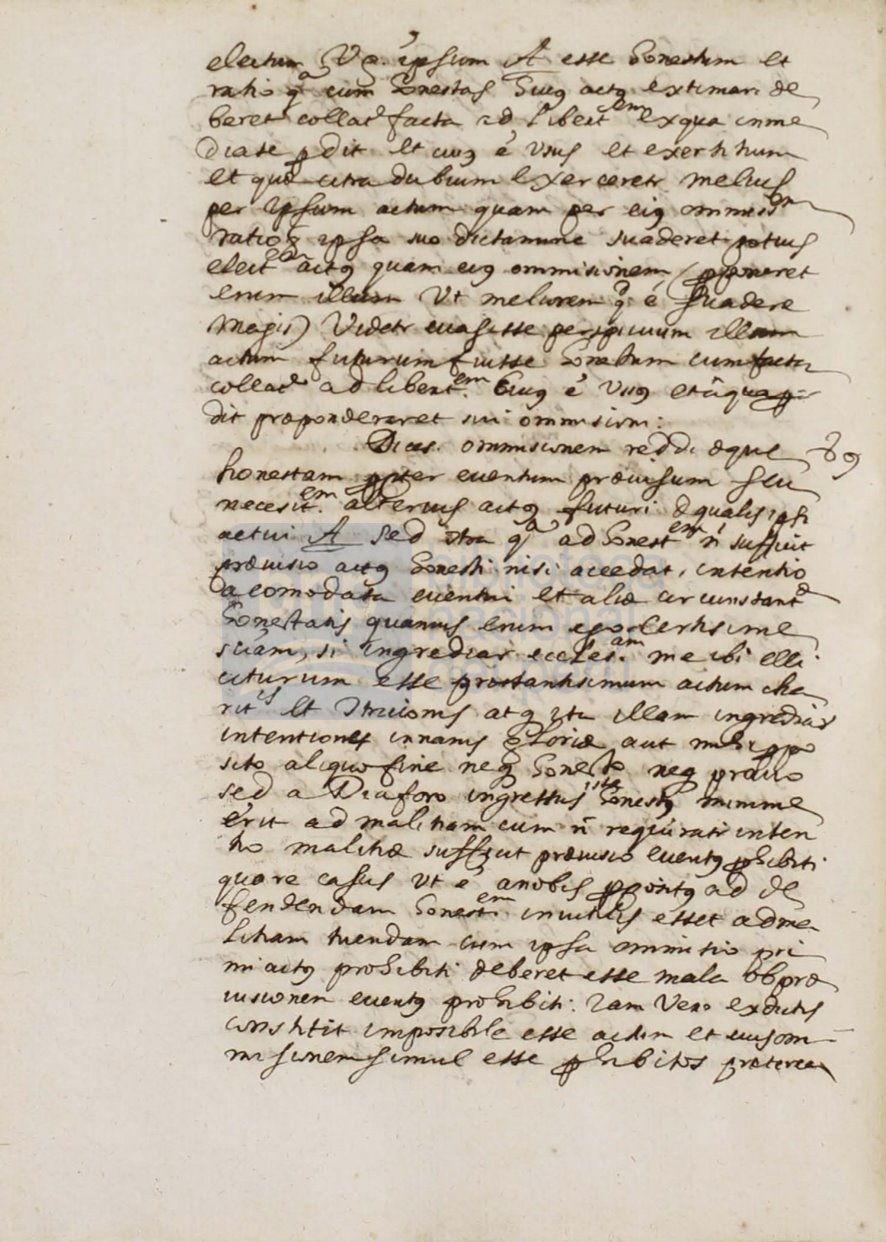 electum Vg. ipsum A esse honestum et
ratio qa cum honestas huiq actq extimari de
beret collate facta ad libertem ex qua inme
diate pdit et cuiq é Usus et exertitium
et quæ citra dubium exerceretr melius
per ipsum actum quam per eiq ommissm
ratioq ipsa suo dictamine suaderet potius
electm actq quam eiq ommisionem (pponeret
enim illum Ut meliorem q é suadere
Magis) Videtr euasisse perspicuum illum
actum futurum fuisse honestum cum facta
collate ad libertem. huiq é Usq et à qua p
dit præponderaret sui ommisioni:
Dices. ommisionem reddi æque 89
honestam ppter euentum præuisum seu
necesitem. alterius actq futuri æqualis ipsi
actui A sed otra qa ad honestem ñ sufficit
præuisio actq honesti nisi accedat, intentio
acomodata euentui et aliæ circunstantæ
honestatis quamuis enim ego certisime
sciam, si ingrediar ecclesiam me ibi elli
citurum esse prestantisimum actum cha
ritis et otricionis atq ita illam ingrediar
intentione innanis gloriæ aut nulo ppo
sito aliquo fine neq honesto neq prauo
sed a Diaforo ingressus iste honestq minime
erit ad malitiam cum ñ requiratr inten
tio malitiæ sufficit præuisio euentq phibiti
quare casus Ut é a nobis ppositq ad de
fendendam honestem inutilis esset ad ma
litiam tuendam cum ipsa ommitio pri
mi actq prohibiti deberet esse mala ob præ
uisionem euentq prohibiti. Iam Vero ex dictis
constitit imposibile esse actum et eius om
misionem simul esse phibitos præterea